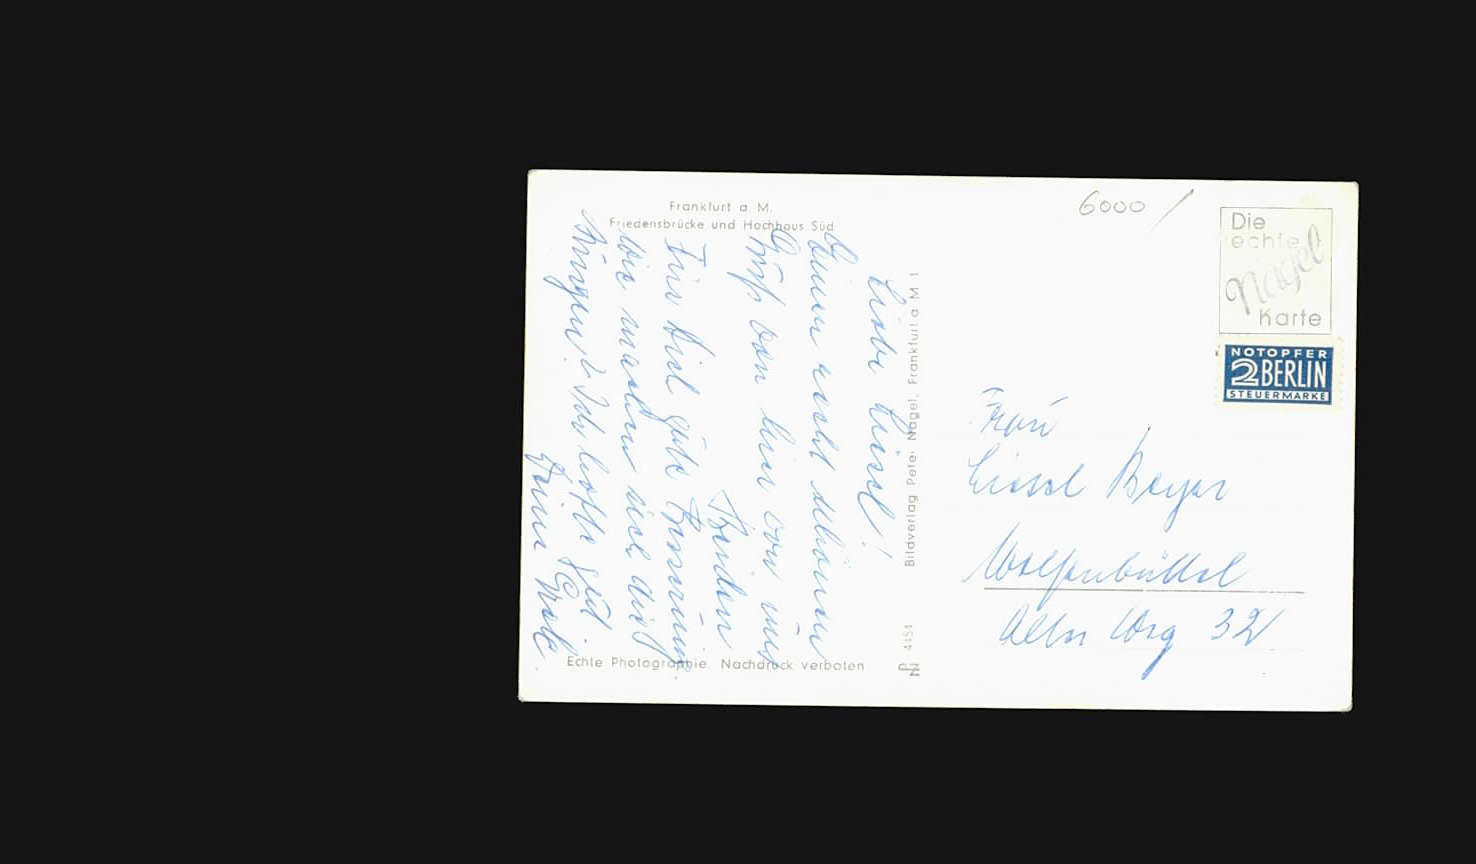 Frankfurt a. M.
Friedensbrücke und Hochhaus Süd
Liebe Liesel!
Einen recht schönen
Gruß von hier von uns
Beiden
Für Dich gute Besserung.
Was machen die
Jungen? Ich hoffe
Deine
Echte Photographie. Nachdruck verboten
Bildverlag Peter Nagel, Frankfurt a M 1
4454
6000 /
Die
echte
Nagel
Karte
NOTOPFER
2 BERLIN
STEUERMARKE
Frau
Liesel Beyer
Wolfenbüttel
Alter Weg 32